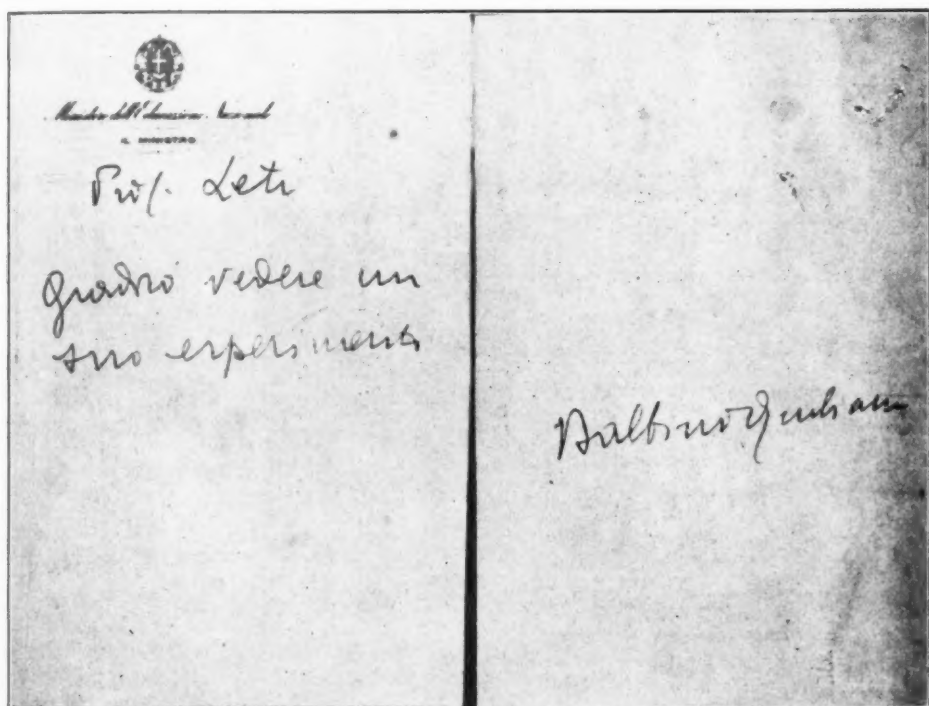 Ministero dell'Educazione Nazionale
IL MINISTRO
Prof. Leti
Gradirò vedere un
suo esperimento
Balbino Giuliano